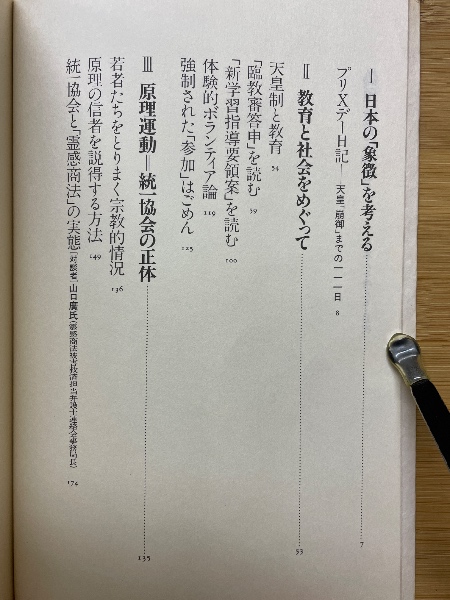 Ⅰ 日本の「象徴」を考える 7
プリXデー日記――天皇「崩御」までの一一一日 8
Ⅱ 教育と社会をめぐって 53
天皇制と教育 54
「臨教審答申」を読む 59
「新学習指導要領案」を読む 100
体験的ボランティア論 119
強制された「参加」はごめん 125
Ⅲ 原理運動=統一協会の正体 135
若者たちをとりまく宗教的情況 136
原理の信者を説得する方法 149
統一協会と「霊感商法」の実態〔対談者、山口廣氏(霊感商法被害救済担当弁護士連絡会事務局長)〕 174